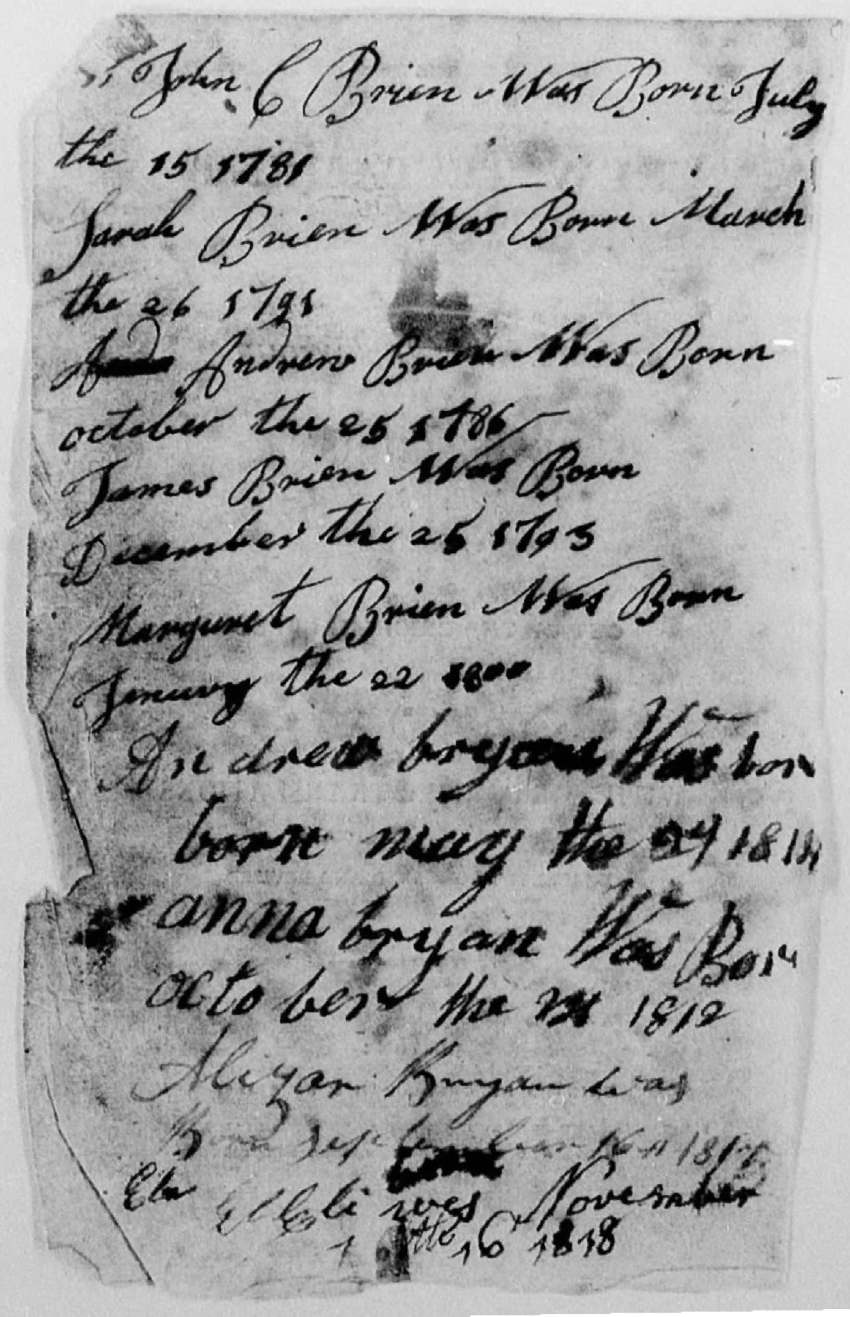 John C Brien Was Born July
the 15 1781
Sarah Brien Was Born March
the 26 1791
Andrew Brien Was Born
october the 25 1786
James Brien Was Born
December the 25 1793
Marguret Brien Was Born
Jenuary the 22 1800
Andrew bryan Was born
born may the 27 181
anna bryan Was Born
october the 1812
Alizan Bryan was
Born September 16
Eli wes November
the 16 1818